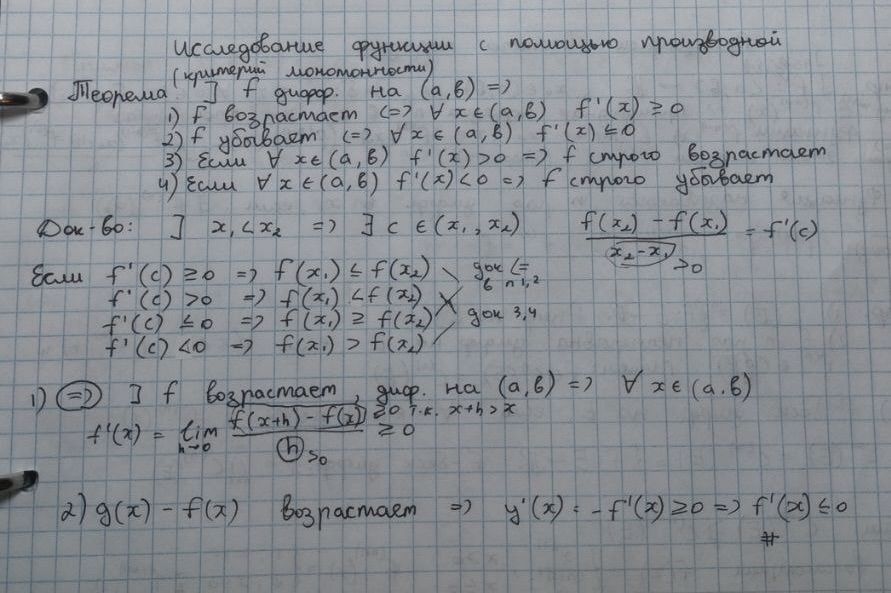 Исследование функции с помощью производной
(критерий монотонности)
Теорема ] f дифф. на (a,b) =>
1) f возрастает <=> ∀ x∈(a,b) f'(x) ≥ 0
2) f убывает <=> ∀ x ∈ (a,b) f'(x) ≤ 0
3) Если ∀ x∈(a,b) f'(x) > 0 => f строго возрастает
4) Если ∀ x∈(a,b) f'(x) < 0 => f строго убывает
Док-во: ] x₁ < x₂ => ∃ c ∈ (x₁, x₂) f(x₂) - f(x₁) / x₂ - x₁ = f'(c)
>0
Если f'(c) ≥ 0 => f(x₁) ≤ f(x₂) док <=
в п 1,2
f'(c) > 0 => f(x₁) < f(x₂)
f'(c) ≤ 0 => f(x₁) ≥ f(x₂) док 3,4
f'(c) < 0 => f(x₁) > f(x₂)
1) => ] f возрастает, диф. на (a,b) => ∀ x∈(a.b)
f'(x) = lim h→0 f(x+h) - f(x) / h ≥ 0
≥0 т.к. x+h > x
>0
2) g(x) - f(x) возрастает => y'(x) = -f'(x) ≥ 0 => f'(x) ≤ 0
#